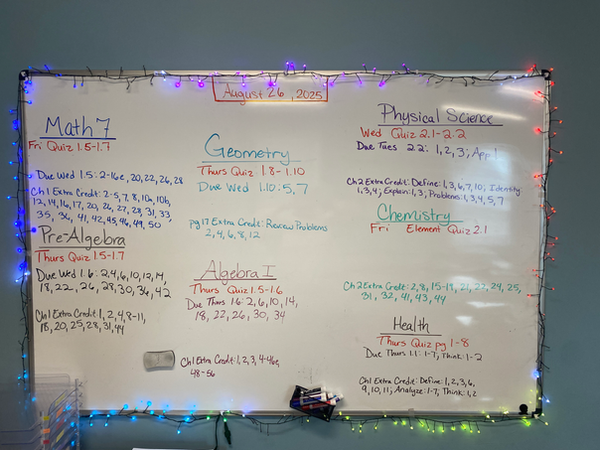 August 26, 2025
Math 7
Fri Quiz 1.5-1.7
Due Wed 1.5: 2-16e, 20, 22, 26, 28
Ch 1 Extra Credit: 2-5, 7, 8, 10a, 10b,
12, 14, 16, 17, 20, 26, 27, 28, 31, 33,
35, 36, 41, 42, 45, 46, 49, 50
Pre-Algebra
Thurs Quiz 1.5-1.7
Due Wed 1.6: 2, 4, 6, 10, 12, 14,
18, 22, 26, 28, 30, 36, 42
Ch 1 Extra Credit: 1, 2, 4, 8-11,
18, 20, 25, 28, 31, 44
Geometry
Thurs Quiz 1.8-1.10
Due Wed 1.10: 5, 7
pg 17 Extra Credit: Review Problems
2, 4, 6, 8, 12
Algebra I
Thurs Quiz 1.5-1.6
Due Thurs 1.6: 2, 6, 10, 14,
18, 22, 26, 30, 34
Ch 1 Extra Credit: 1, 2, 3, 4-46e,
48-56
Physical Science
Wed Quiz 2.1-2.2
Due Tues 2.2: 1, 2, 3; App 1
Ch 2 Extra Credit: Define: 1, 3, 6, 7, 10; Identify:
1, 3, 4; Explain: 1, 3; Problems: 1, 3, 4, 5, 7
Chemistry
Fri Element Quiz 2.1
Ch 2 Extra Credit: 2, 8, 15-19, 21, 22, 24, 25,
31, 32, 41, 43, 44
Health
Thurs Quiz pg 1-8
Due Thurs 1.1: 1-7, Think: 1-2
Ch 1 Extra Credit: Define: 1, 2, 3, 6,
9, 10, 11; Analyze: 1-7; Think: 1, 2